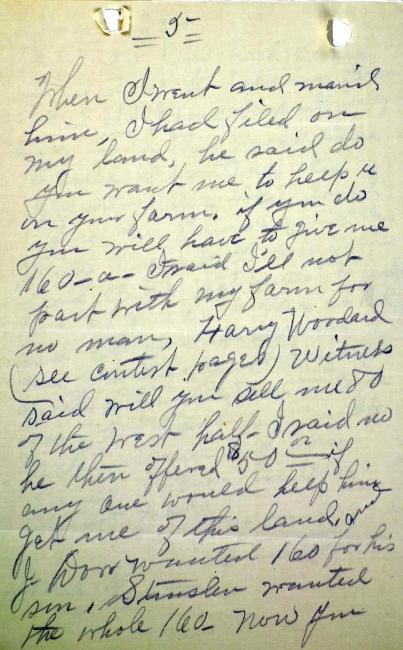 5
When I went and marrid
him, I had filed on
my land, he said do
you want me to help u
on your farm, if you do
you will have to give me
160-a- I said I'll not
part with my farm for
no man, Harry Woodard
(see contest pages) Witness
said will you sell me 80
of the West half- I said no
he then offered $50 if
any one would help him
get me of this land, and
J Dow wanted 160 for his
son, wanted
the whole 160- now you